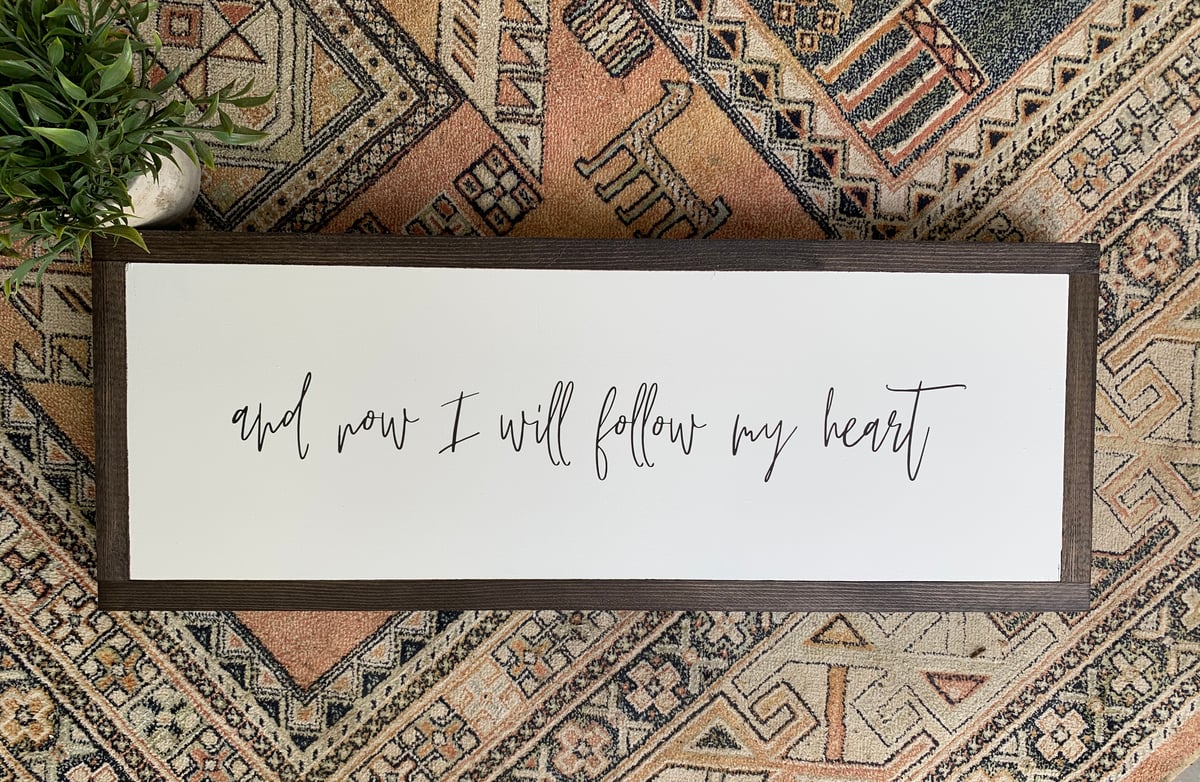 and now I will follow my heart